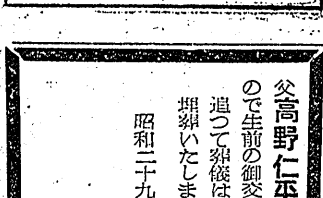 父高野仁平
ので生前の御交
追つて葬儀は
埋葬いたしま
昭和二十九